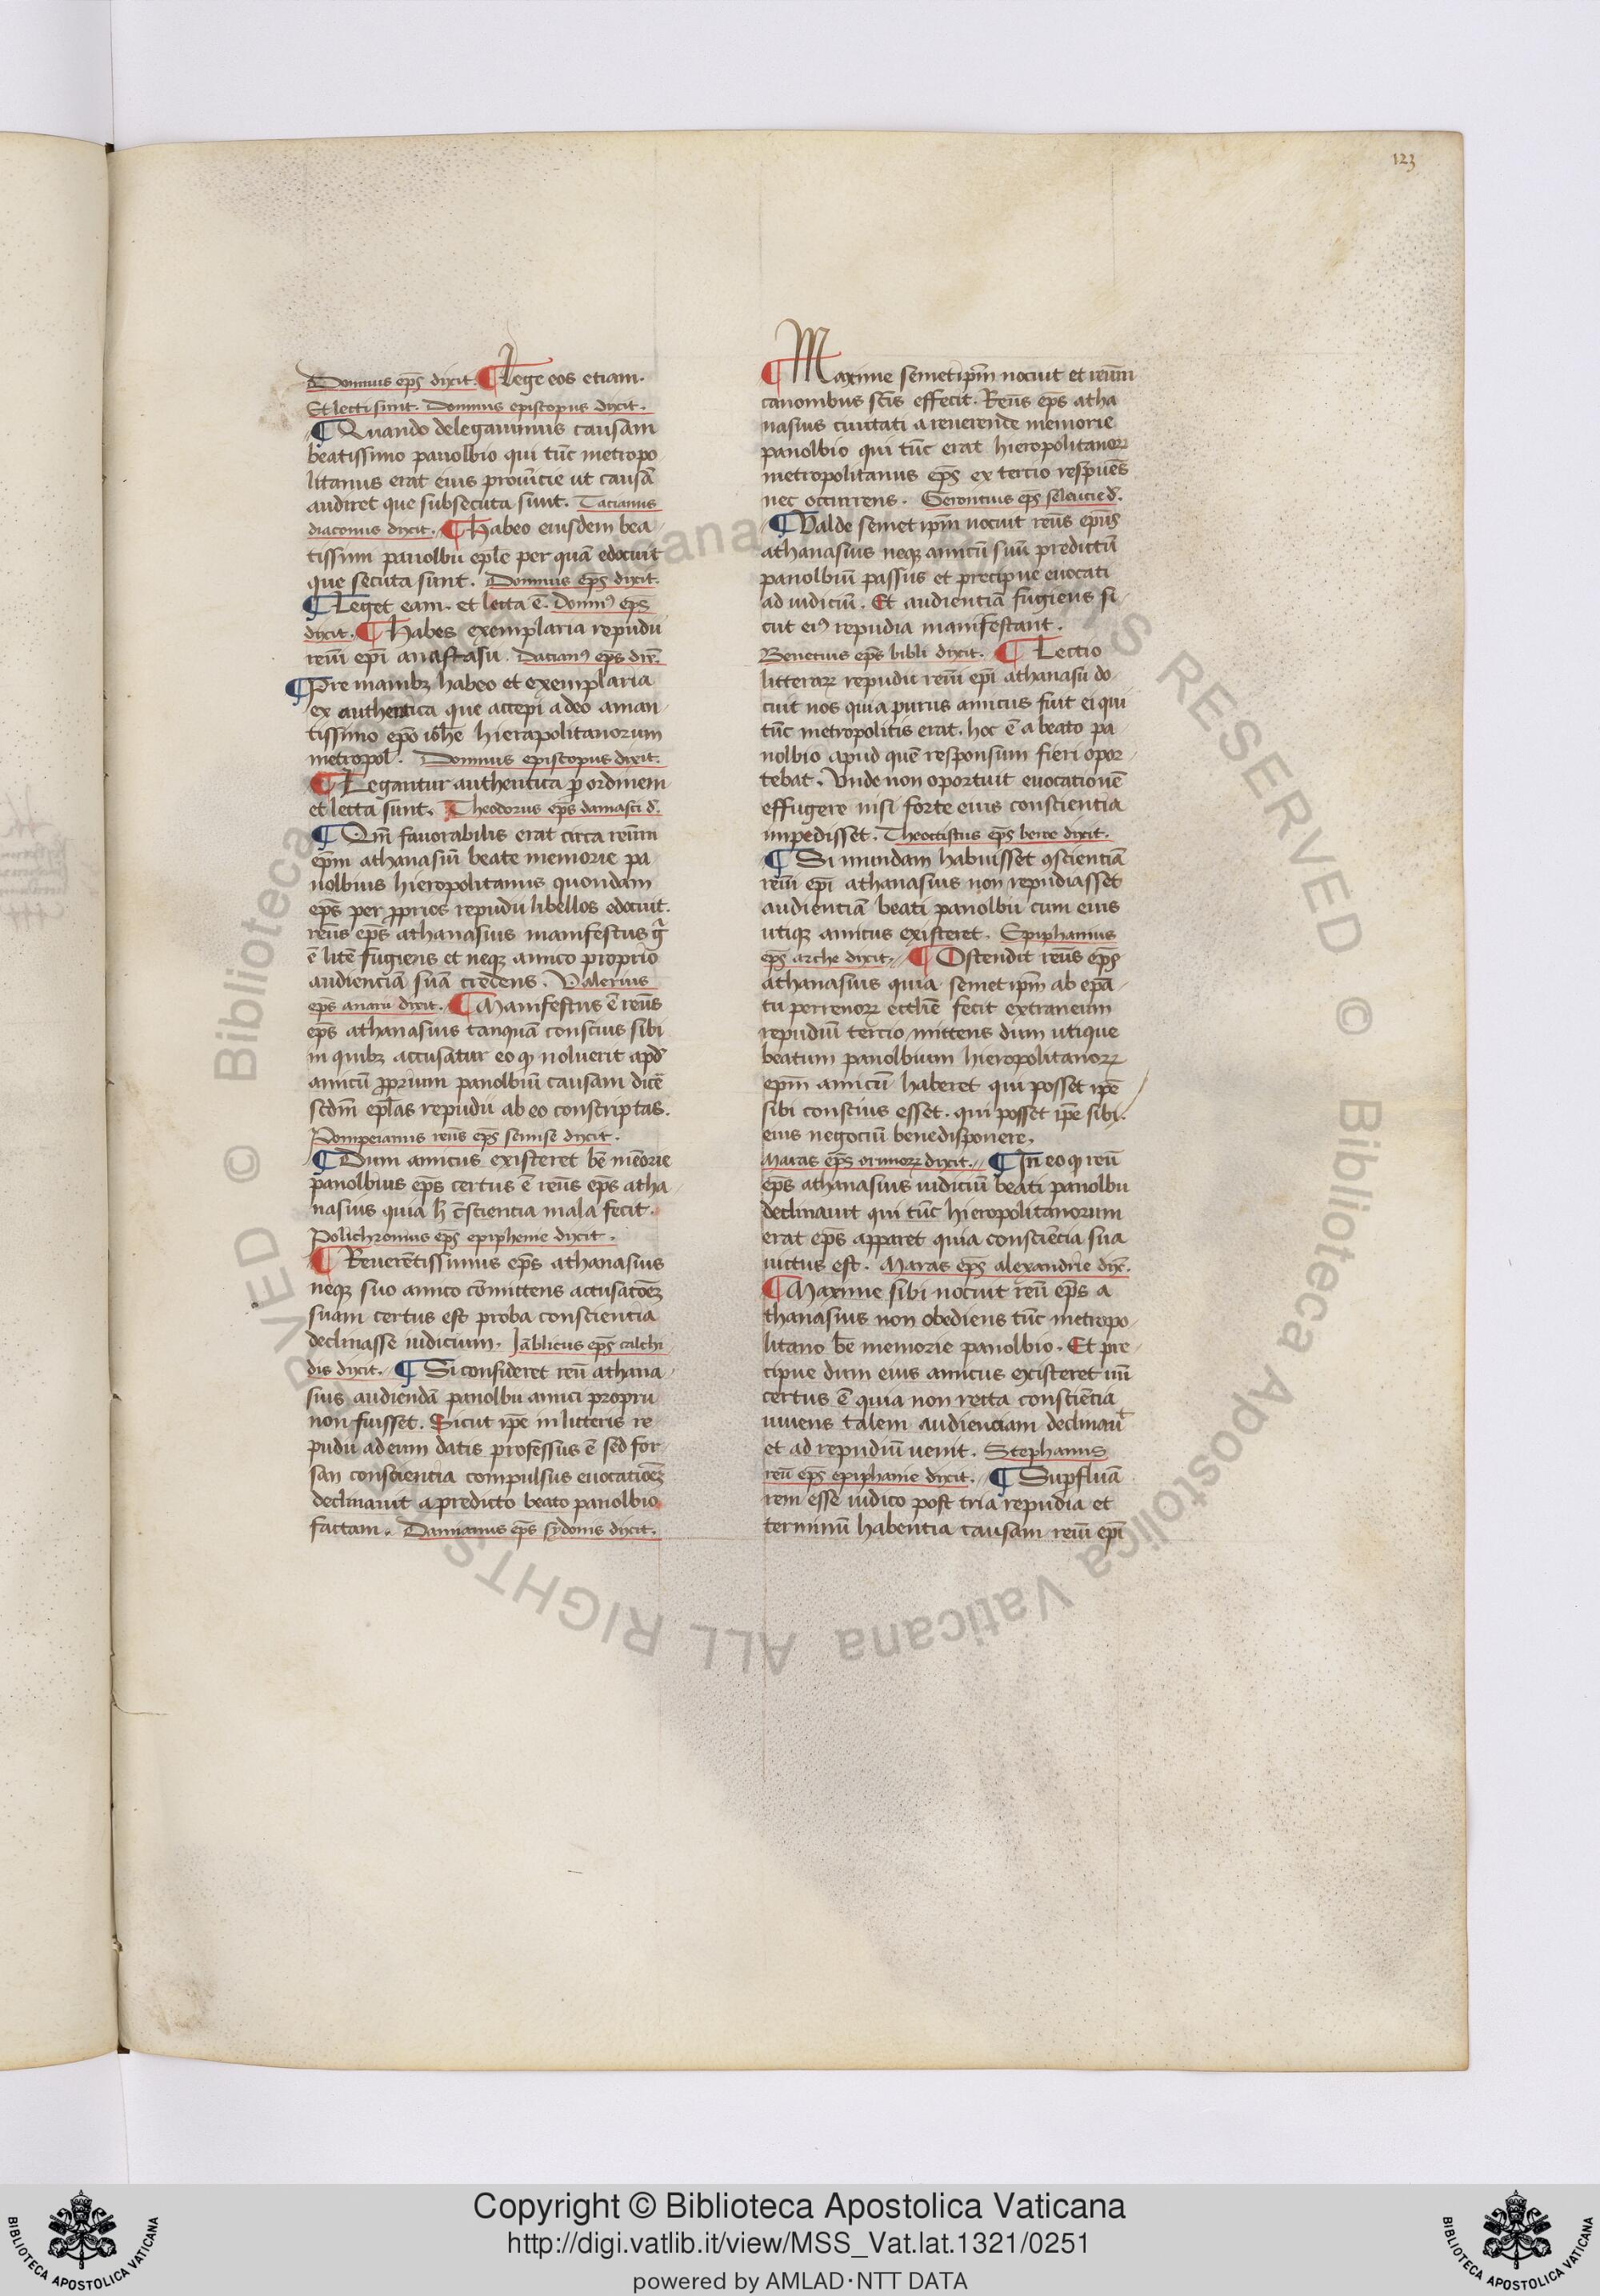 123
Domnus ep̄s dixit. ¶ Lege eos etiam.
Et lecti sunt. Domnus episcopus dixit.
¶ Quando delegauimus causam
beatissimo panolbio qui tūc metropo
litanus erat eius prouīcie ut causā
audiret que subsecuta sunt. Tacianus
diaconus dixit. ¶ Habeo eiusdem bea
tissimi panolbii ep̄le per quā edocuit
que secuta sunt. Domnus ep̄s dixit.
¶ Leget eam. et lecta ē. Domnꝰ ep̄s
dixit. ¶ Habes exemplaria repudii
reuī ep̄i anastasii. Dacianꝰ ep̄s dix̄.
¶ Pre manibꝫ habeo et exemplaria
ex authentica que accepi a deo aman
tissimo ep̄o ioh̄e hierapolitanorum
metropol̄. Domnus episcopus dixit.
¶ Legantur authentica ꝑ ordinem
et lecta sunt. Theodorus ep̄s damasci d̄.
¶ Qm̄ fauorabilis erat circa reūm
ep̄m athanasiū beate memorie pa
nolbius hieropolitanus quondam
ep̄s per ꝓprios repudii libellos edocuit.
reūs ep̄s athanasius manifestus g̊
ē litē fugiens et neqꝫ amico proprio
audienciā suā credens. Valerius
ep̄s anarii dixit. ¶ Manifestus ē reūs
ep̄s athanasius tanquā conscius sibi
in quibꝫ accusatur eo ꝙ noluerit apd̄
amicū ꝓprium panolbiū causam dicē
scdm̄ ep̄las repudii ab eo conscriptas.
Pompeianus reūs ep̄s semise dixit.
¶ Dum amicus existeret bē mēorie
panolbius ep̄s certus ē reūs ep̄s atha
nasius quia h̄ cōscientia mala fecit.
Polichronius ep̄s epiphenie dixit.
¶ Reuerētissimus ep̄s athanasius
neqꝫ suo amico cōmittens actusatōeꝫ
suam certus est proba conscientia
declinasse iudicium. Jāblicus ep̄s calchi
dis dixit. ¶ Si consideret reū athana
sius audiendā panolbii amici proprii
non fuisset. Sicut ip̄e in litteris re
pudii ad eum datis professus ē sed for
san conscientia compulsus euocatiōeꝫ
declinauit a predicto beato panolbio
factam. Damianus ep̄s sydonis dixit.
¶ Maxime semetip̄m nocuit et reūm
canonibus sc̄is effecit. Reūs ep̄s atha
nasius ciuitati a reuerende memorie
panolbio qui tūc erat hieropolitanoꝝ
metropolitanus ep̄s ex tercio respuēs
nec occurrens. Gerontius ep̄s seleucie d̄.
¶ Valde semet ip̄m nocuit reūs ep̄us
athanasius neqꝫ amicū suū predictū
panolbiū passus et precipue euocati
ad iudiciū. Et audientiā fugiens si
cut eiꝰ repudia manifestant.
Benetius ep̄s bibli dixit. ¶ Lectio
litteraꝝ repudii reuī ep̄i athanasii do
cuit nos quia purus amicus fuit ei qui
tūc metropolitis erat. hoc ē a beato pa
nolbio apud quē responsum fieri opor
tebat. Vnde non oportuit euocationē
effugere nisi forte eius conscientia
impedisset. Theoctistus ep̄s beroe dixit.
¶ Si mundam habuisset ꝯscientiā
reuī ep̄i athanasius non repudiasset
audientiā beati panolbii cum eius
utiqꝫ amicus existeret. Epiphanius
ep̄s arche dixit. ¶ Ostendit reūs ep̄s
athanasius quia semet ip̄m ab ep̄a
tu perrenoꝝ eccl̄ie fecit extraneum
repudiū tercio mittens dum utique
beatum panolbium hieropolitanoꝝ
ep̄m amicū haberet qui posset ip̄e
sibi conscius esset. qui posset ip̄e sibi.
eius negociū bene disponere.
Maras ep̄s orimoꝝ dixit. ¶ In eo ꝙ reū
ep̄s athanasius iudiciū beati panolbii
declinauit qui tūc hieropolitanorum
erat ep̄s apparet quia consciēcia sua
uictus est. Maras ep̄s alexandrie dix̄.
¶ Maxime sibi nocuit reū ep̄s a
thanasius non obediens tūc metropo
litano bē memorie panolbio. Et pre
cipue dum eius amicus existeret nū
certus ē quia non recta consciētia
uiuens talem audienciam declinauᵗ
et ad repudiū uenit. Stephanus
reū ep̄s epiphanie dixit. ¶ Supfluā
rem esse iudico post tria repudia et
terminū habentia causam reuī ep̄i
Copyright © Biblioteca Apostolica Vaticana
http://digi.vatlib.it/view/MSS_Vat.lat.1321/0251
powered by AMLAD·NTT DATA
BIBLIOTECA APOSTOLICA VATICANA
BIBLIOTECA APOSTOLICA VATICANA